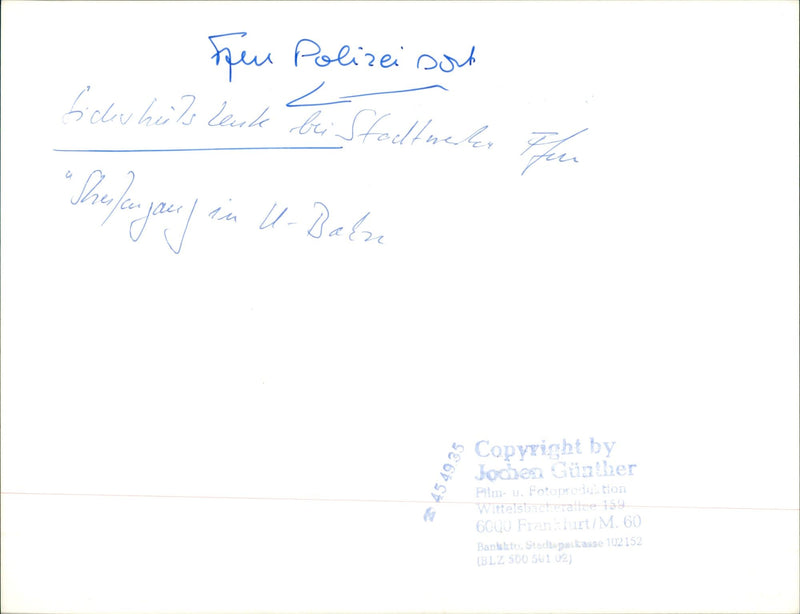 Ffm Polizei dort
Sicherheitsleute bei Stadtwerke Ffm
"Streifengang in U-Bahn
☎ 45 49 35
Copyright by
Jochen Günther
Film- u. Fotoproduktion
Wittelsbacherallee 159
6000 Frankfurt/M. 60
Bankkto. Stadtsparkasse 102152
(BLZ 500 501 02)